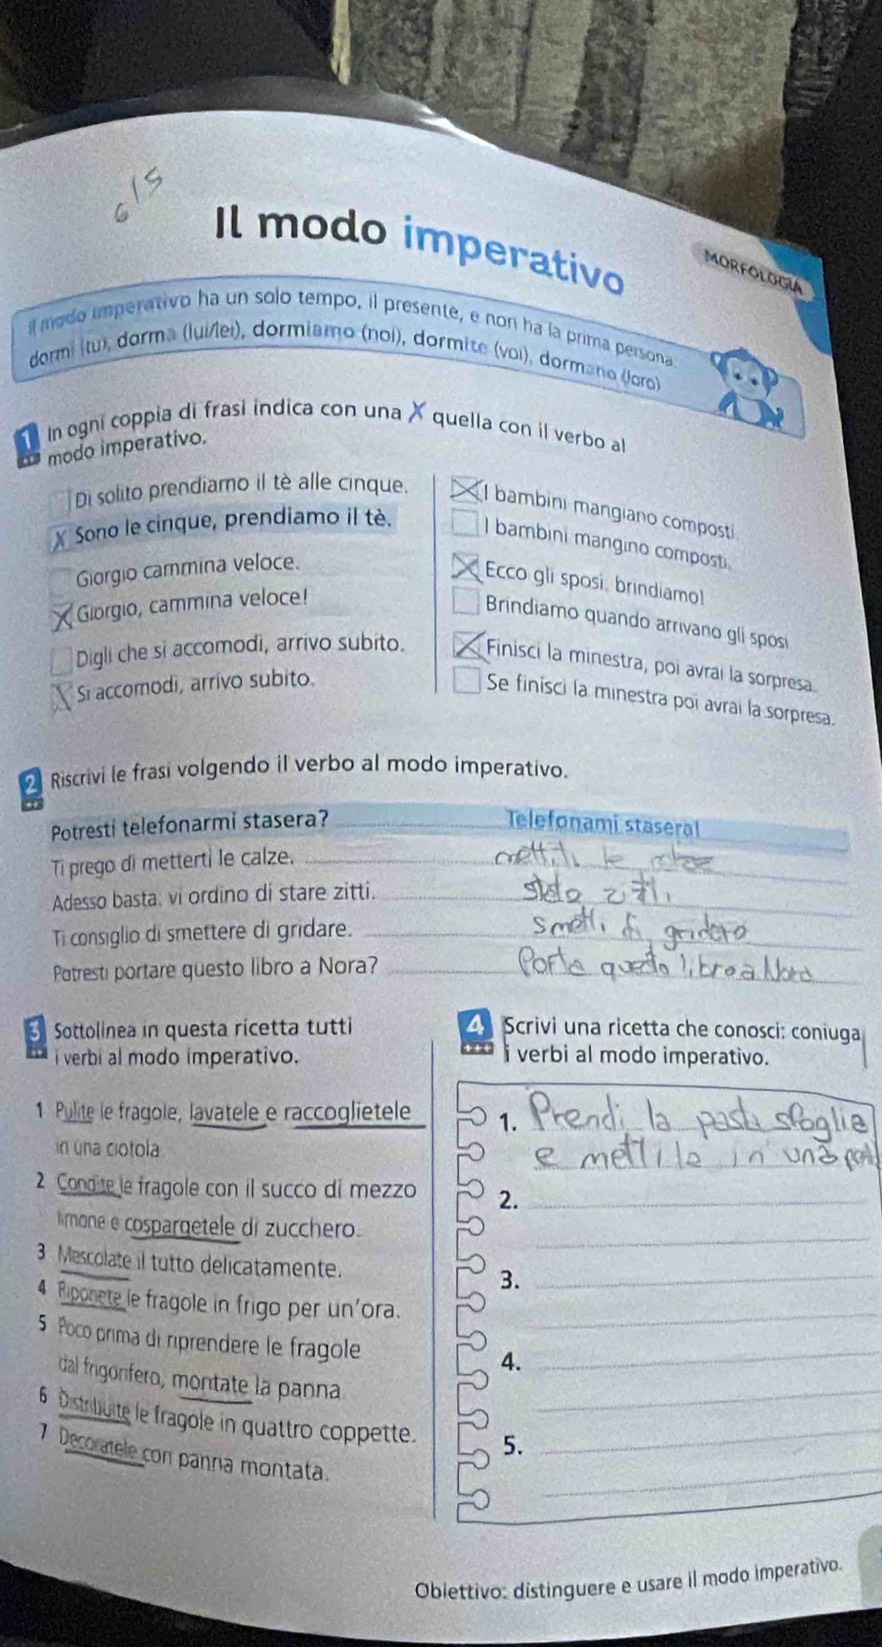 6/5
Il modo imperativo
MORFOLOGIA
Il modo imperativo ha un solo tempo, il presente, e non ha la prima persona:
dormi (tu), dorma (lui/lei), dormiamo (noi), dormite (voi), dormano (loro)
1 In ogni coppia di frasi indica con una X quella con il verbo al
modo imperativo.
Di solito prendiamo il tè alle cinque.
X Sono le cinque, prendiamo il tè.
Giorgio cammina veloce.
X Giorgio, cammina veloce!
Digli che si accomodi, arrivo subito.
X Si accomodi, arrivo subito.
X I bambini mangiano composti.
I bambini mangino composti.
X Ecco gli sposi, brindiamo!
Brindiamo quando arrivano gli sposi
X Finisci la minestra, poi avrai la sorpresa.
Se finisci la minestra poi avrai la sorpresa.
2 Riscrivi le frasi volgendo il verbo al modo imperativo.
Potresti telefonarmi stasera? Telefonami stasera!
Ti prego di metterti le calze. mettiti le calze
Adesso basta, vi ordino di stare zitti. zitti
Ti consiglio di smettere di gridare. smetti di
Potresti portare questo libro a Nora? Porta questo libro a Nora
3 Sottolinea in questa ricetta tutti
i verbi al modo imperativo.
1 Pulite le fragole, lavatele e raccoglietele
in una ciotola.
2 Condite le fragole con il succo di mezzo
limone e cospargetele di zucchero.
3 Mescolate il tutto delicatamente.
4 Riponete le fragole in frigo per un'ora.
5 Poco prima di riprendere le fragole
dal frigorifero, montate la panna.
6 Distribuite le fragole in quattro coppette.
7 Decoratele con panna montata.
4 Scrivi una ricetta che conosci: coniuga
i verbi al modo imperativo.
1. Prendi la pasta sfoglie
e mettila in una
2.
3.
4.
5.
Obiettivo: distinguere e usare il modo imperativo.